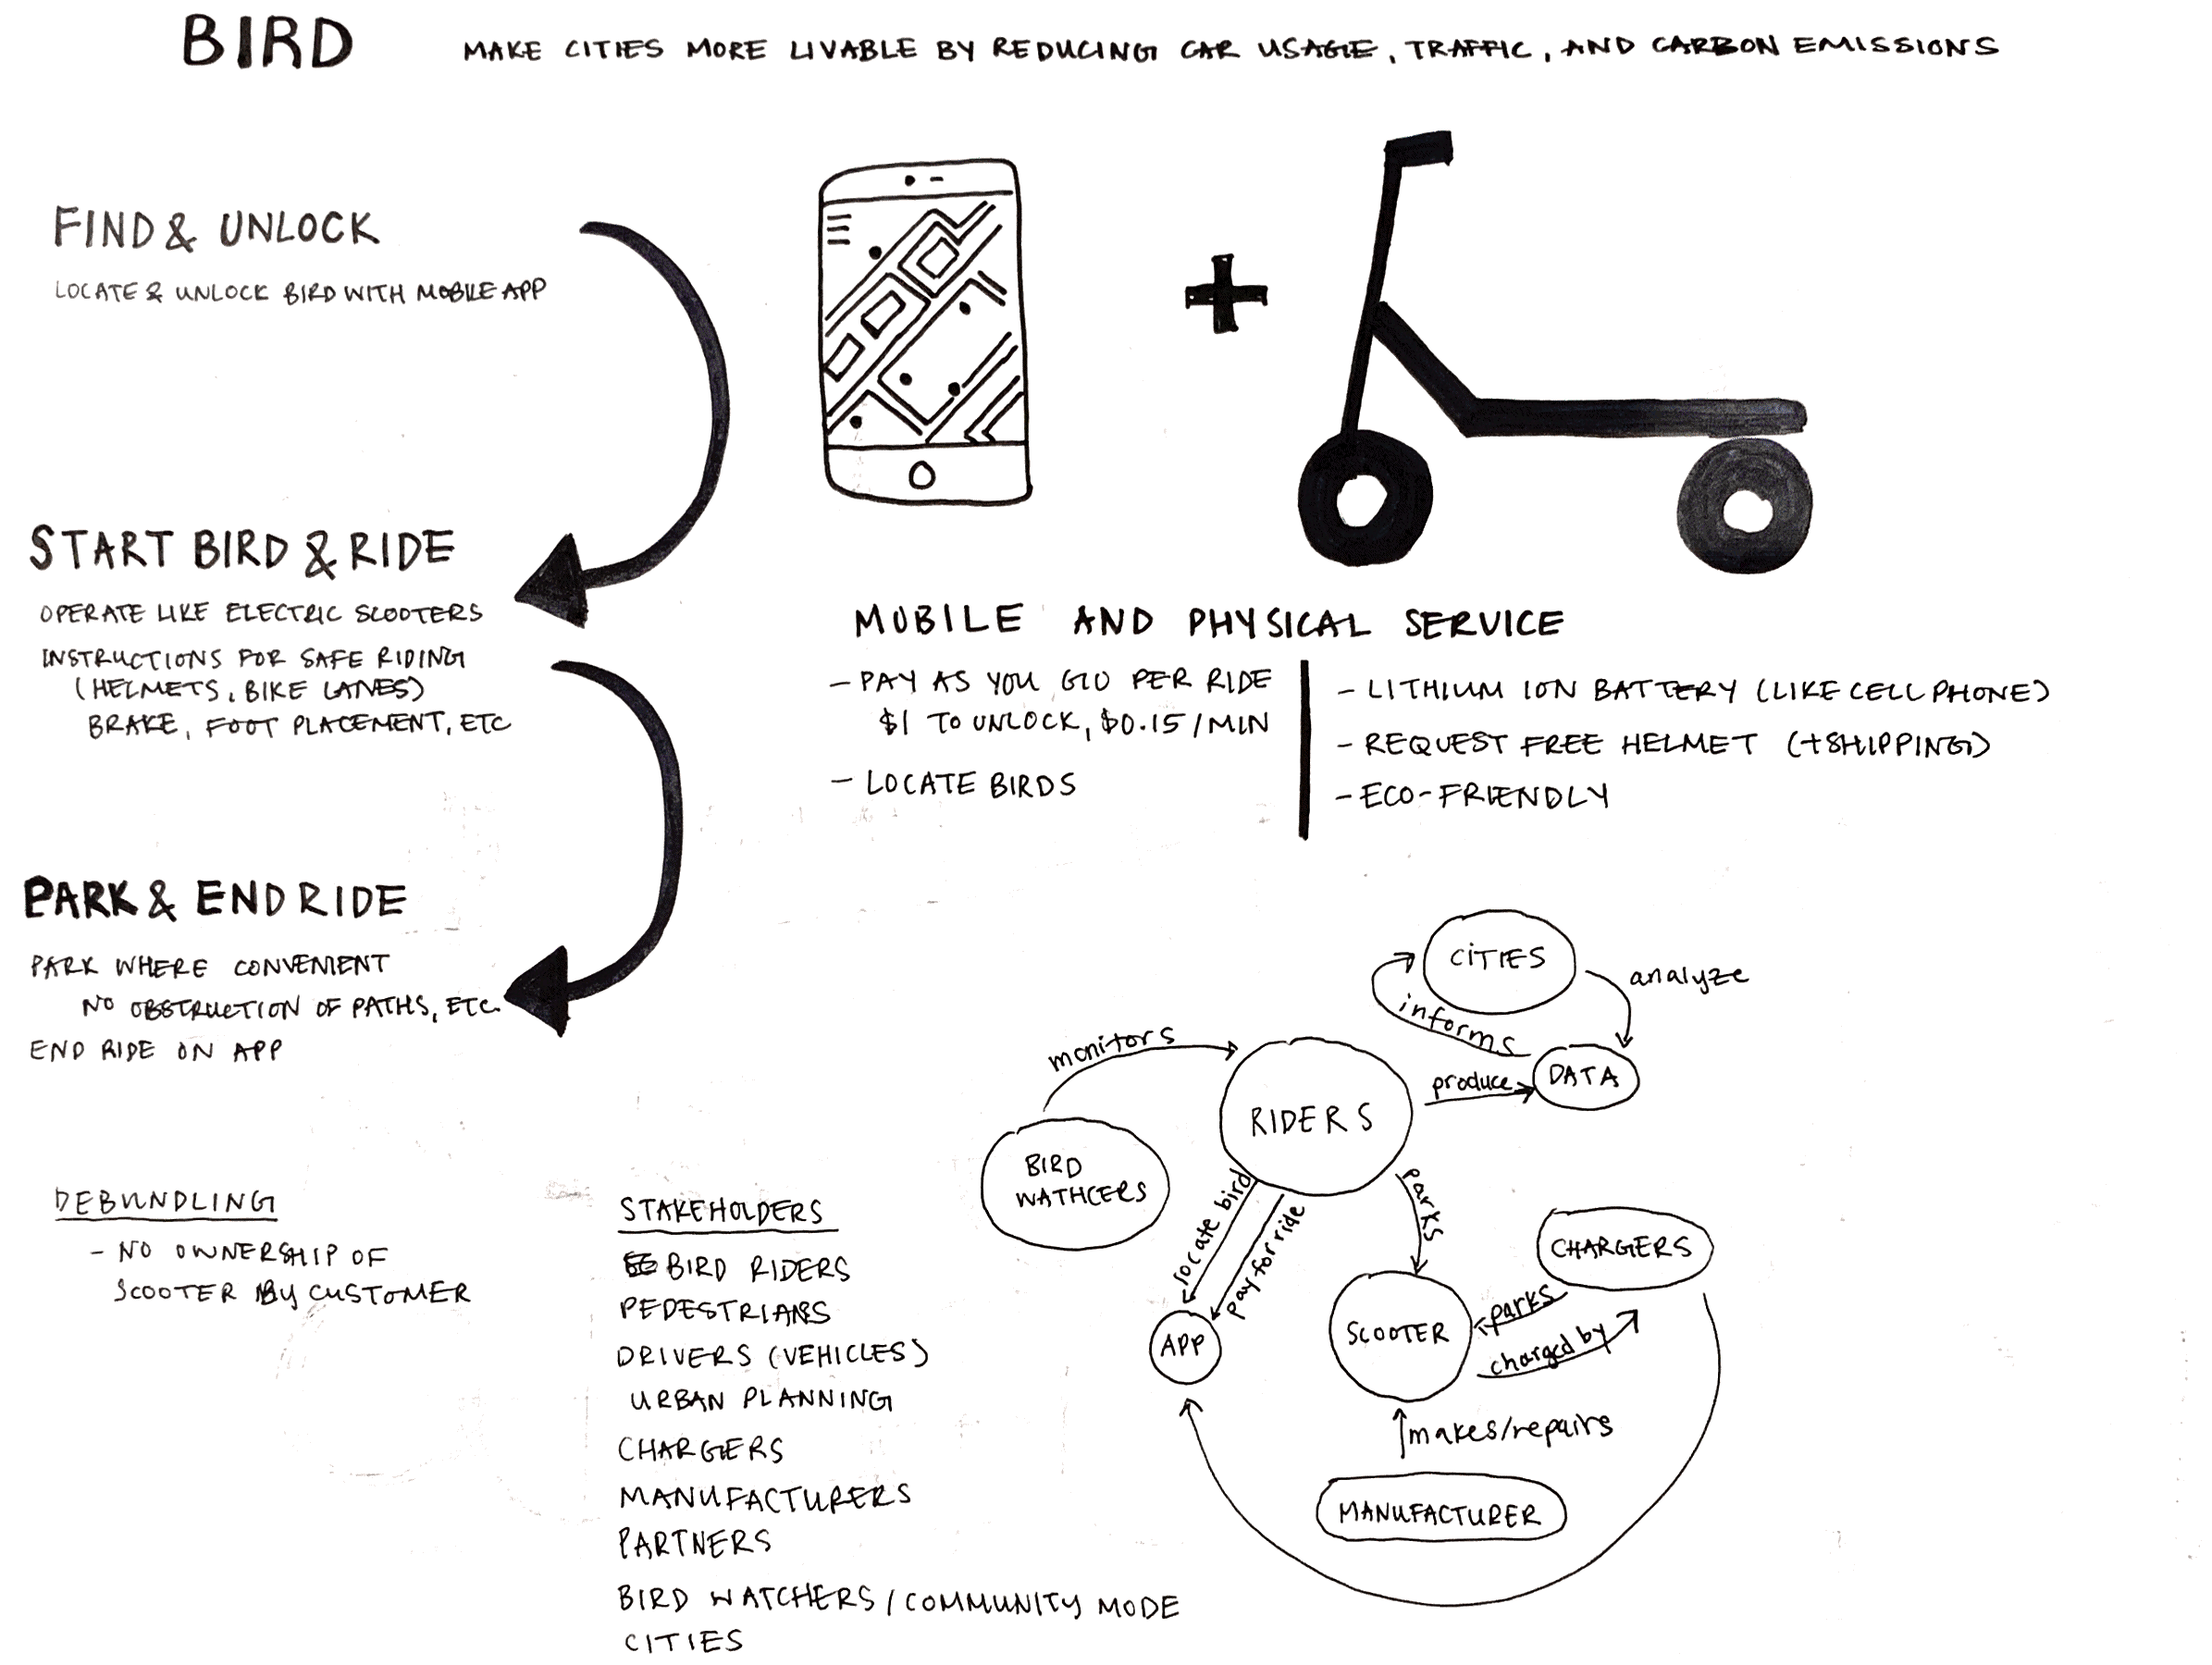 BIRD
MAKE CITIES MORE LIVABLE BY REDUCING CAR USAGE, TRAFFIC, AND CARBON EMISSIONS
FIND & UNLOCK
LOCATE & UNLOCK BIRD WITH MOBILE APP
START BIRD & RIDE
OPERATE LIKE ELECTRIC SCOOTERS
INSTRUCTIONS FOR SAFE RIDING
(HELMETS, BIKE LANES)
BRAKE, FOOT PLACEMENT, ETC
PARK & END RIDE
PARK WHERE CONVENIENT
NO OBSTRUCTION OF PATHS, ETC.
END RIDE ON APP
MOBILE AND PHYSICAL SERVICE
- PAY AS YOU GO PER RIDE
$1 TO UNLOCK, $0.15/MIN
- LOCATE BIRDS
- LITHIUM ION BATTERY (LIKE CELL PHONE)
- REQUEST FREE HELMET (+SHIPPING)
- ECO-FRIENDLY
DEBUNDLING
- NO OWNERSHIP OF
SCOOTER BY CUSTOMER
STAKEHOLDERS
BIRD RIDERS
PEDESTRIANS
DRIVERS (VEHICLES)
URBAN PLANNING
CHARGERS
MANUFACTURERS
PARTNERS
BIRD WATCHERS / COMMUNITY MODE
CITIES
CITIES
analyze
informs
DATA
produce
monitors
RIDERS
BIRD
WATHCERS
locate bird
pay for ride
parks
APP
SCOOTER
CHARGERS
parks
charged by
makes/repairs
MANUFACTURER